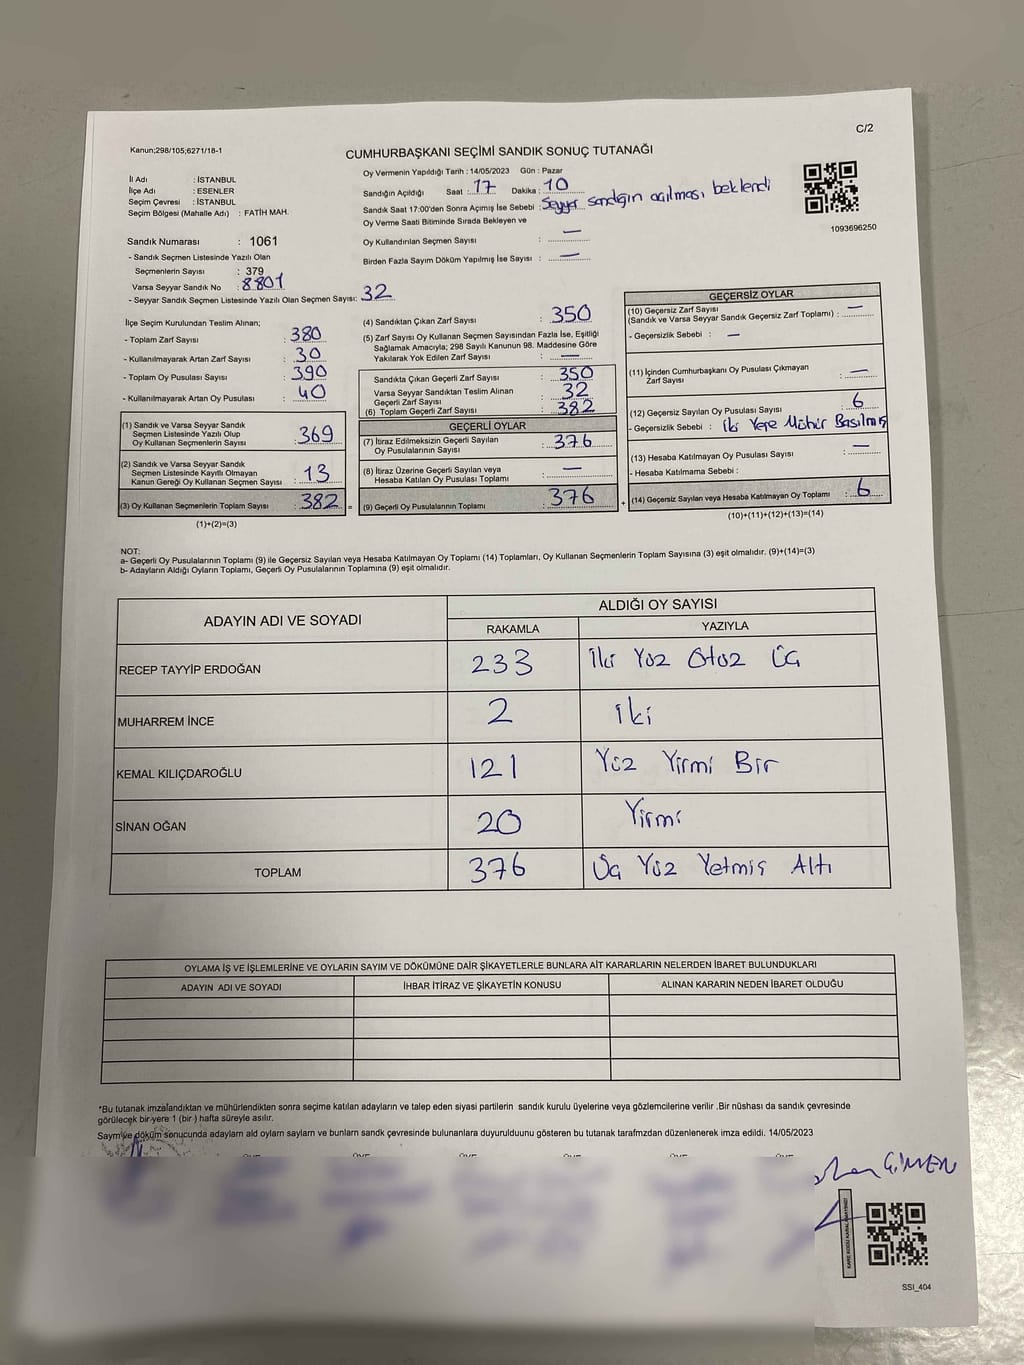 C/2
Kanun;298/105;6271/18-1
CUMHURBAŞKANI SEÇİMİ SANDIK SONUÇ TUTANAĞI
İl Adı : İSTANBUL
İlçe Adı : ESENLER
Seçim Çevresi : İSTANBUL
Seçim Bölgesi (Mahalle Adı) : FATİH MAH.
Oy Vermenin Yapıldığı Tarih : 14/05/2023 Gün : Pazar
Sandığın Açıldığı Saat : 17 Dakika : 10
Sandık Saat 17:00'den Sonra Açımış İse Sebebi : Seyyar sandığın açılması beklendi
Oy Verme Saati Bitiminde Sırada Bekleyen ve
Oy Kullandırılan Seçmen Sayısı : —
Birden Fazla Sayım Döküm Yapılmış İse Sayısı : —
1093696250
Sandık Numarası : 1061
- Sandık Seçmen Listesinde Yazılı Olan
Seçmenlerin Sayısı : 379
Varsa Seyyar Sandık No : 8801
- Seyyar Sandık Seçmen Listesinde Yazılı Olan Seçmen Sayısı: 32
İlçe Seçim Kurulundan Teslim Alınan;
- Toplam Zarf Sayısı : 380
- Kullanılmayarak Artan Zarf Sayısı : 30
- Toplam Oy Pusulası Sayısı : 390
- Kullanılmayarak Artan Oy Pusulası : 40
(1) Sandık ve Varsa Seyyar Sandık
Seçmen Listesinde Yazılı Olup
Oy Kullanan Seçmenlerin Sayısı : 369
(2) Sandık ve Varsa Seyyar Sandık
Seçmen Listesinde Kayıtlı Olmayan
Kanun Gereği Oy Kullanan Seçmen Sayısı : 13
(3) Oy Kullanan Seçmenlerin Toplam Sayısı : 382 =
(1)+(2)=(3)
(4) Sandıktan Çıkan Zarf Sayısı : 350
(5) Zarf Sayısı Oy Kullanan Seçmen Sayısından Fazla İse, Eşitliği
Sağlamak Amacıyla; 298 Sayılı Kanunun 98. Maddesine Göre
Yakılarak Yok Edilen Zarf Sayısı : —
Sandıkta Çıkan Geçerli Zarf Sayısı : 350
Varsa Seyyar Sandıktan Teslim Alınan
Geçerli Zarf Sayısı : 32
(6) Toplam Geçerli Zarf Sayısı : 382
GEÇERLİ OYLAR
(7) İtiraz Edilmeksizin Geçerli Sayılan
Oy Pusulalarının Toplamı : 376
(8) İtiraz Üzerine Geçerli Sayılan veya
Hesaba Katılan Oy Pusulası Toplamı : —
(9) Geçerli Oy Pusulalarının Toplamı : 376 +
GEÇERSİZ OYLAR
(10) Geçersiz Zarf Sayısı
(Sandık ve Varsa Seyyar Sandık Geçersiz Zarf Toplamı) : —
- Geçersizlik Sebebi : —
(11) İçinden Cumhurbaşkanı Oy Pusulası Çıkmayan
Zarf Sayısı : —
(12) Geçersiz Sayılan Oy Pusulası Sayısı : 6
- Geçersizlik Sebebi : İki Yere Mühür Basılmış
(13) Hesaba Katılmayan Oy Pusulası Sayısı : —
- Hesaba Katılmama Sebebi :
(14) Geçersiz Sayılan veya Hesaba Katılmayan Oy Toplamı : 6
(10)+(11)+(12)+(13)=(14)
NOT:
a- Geçerli Oy Pusulalarının Toplamı (9) ile Geçersiz Sayılan veya Hesaba Katılmayan Oy Toplamı (14) Toplamları, Oy Kullanan Seçmenlerin Toplam Sayısına (3) eşit olmalıdır. (9)+(14)=(3)
b- Adayların Aldığı Oyların Toplamı, Geçerli Oy Pusulalarının Toplamına (9) eşit olmalıdır.
ADAYIN ADI VE SOYADI ALDIĞI OY SAYISI
RAKAMLA YAZIYLA
RECEP TAYYİP ERDOĞAN 233 İki Yüz Otuz Üç
MUHARREM İNCE 2 iki
KEMAL KILIÇDAROĞLU 121 Yüz Yirmi Bir
SİNAN OĞAN 20 Yirmi
TOPLAM 376 Üç Yüz Yetmiş Altı
OYLAMA İŞ VE İŞLEMLERİNE VE OYLARIN SAYIM VE DÖKÜMÜNE DAİR ŞİKAYETLERLE BUNLARA AİT KARARLARIN NELERDEN İBARET BULUNDUKLARI
ADAYIN ADI VE SOYADI İHBAR İTİRAZ VE ŞİKAYETİN KONUSU ALINAN KARARIN NEDEN İBARET OLDUĞU
*Bu tutanak imzalandıktan ve mühürlendikten sonra seçime katılan adayların ve talep eden siyasi partilerin sandık kurulu üyelerine veya gözlemcilerine verilir .Bir nüshası da sandık çevresinde
görülecek bir yere 1 (bir ) hafta süreyle asılır.
Saym ve döküm sonucunda adaylarn ald oylarn saylarn ve bunlarn sandk çevresinde bulunanlara duyurulduunu gösteren bu tutanak tarafmzdan düzenlenerek imza edildi. 14/05/2023
ÇİMEN
SSI_404